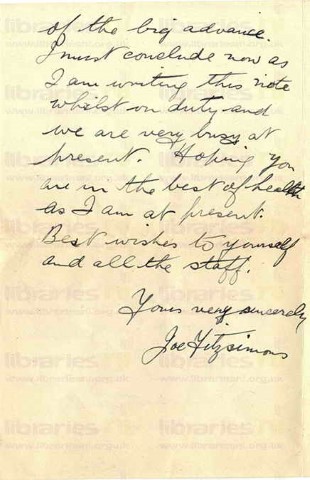 of the big advance.
I must conclude now as
I am writing this note
whilst on duty and
we are very busy at
present. Hoping you
are in the best of health
as I am at present.
Best wishes to yourself
and all the staff.
Yours very sincerely
Joe Fitzsimons